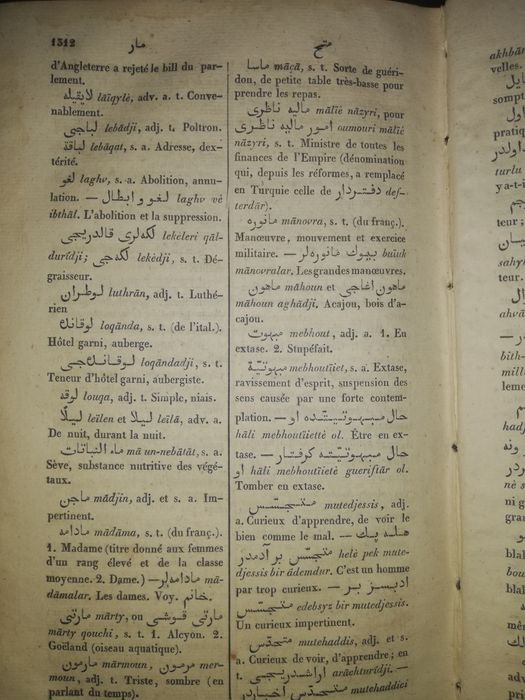 1312
مار
متح
d'Angleterre a rejeté le bill du par-
lement.
لايقيله läïqylè, adv. a. t. Conve-
nablement.
لباجى lebâdji, adj. t. Poltron.
لباقة lebâqat, s. a. Adresse, dex-
térité.
لغو laghv, s. a. Abolition, annu-
lation. — لغو و ابطال laghv vè
ibthâl. L'abolition et la suppression.
لكه لرى قالديريجى lekeleri qâl-
durîdji; لكه جى lekèdji, s. t. Dé-
graisseur.
لوطران luthrân, adj. t. Luthé-
rien
لوقانده loqânda, s. t. (de l'ital.).
Hôtel garni, auberge.
لوقانده جى loqândadji, s. t.
Teneur d'hôtel garni, aubergiste.
لوقه louqa, adj. t. Simple, niais.
ليلًا leïlen et ليلا leïlâ, adv. a.
De nuit, durant la nuit.
ماء النباتات mâ un-nebâtât, s. a.
Sève, substance nutritive des végé-
taux.
ماجن mâdjin, adj. et s. a. Im-
pertinent.
مادامه mâdâma, s. t. (du franç.).
1. Madame (titre donné aux femmes
d'un rang élevé et de la classe
moyenne. 2. Dame.) — مادامه لر mâ-
dâmalar. Les dames. Voy. خانم.
مارتى mârty, ou مارتى قوشى
mârty qouchi, s. t. 1. Alcyon. 2.
Goëland (oiseau aquatique).
مارمون mârmoun, مرمون mer-
moun, adj. t. Triste, sombre (en
parlant du temps).
ماسا mâçâ, s. t. Sorte de guéri-
don, de petite table très-basse pour
prendre les repas.
ماليه ناظرى mâliè nâzyri, pour
امور ماليه ناظرى oumouri mâliè
nâzyri, s. t. Ministre de toutes les
finances de l'Empire (dénomination
qui, depuis les réformes, a remplacé
en Turquie celle de دفتردار def-
terdâr).
مانوره mânovra, s. t. (du franç.).
Manœuvre, mouvement et exercice
militaire. — بيوك مانوره لر buïuk
mânovralar. Les grandes manœuvres.
ماهون et ماهون اغاجى mâhoun
mâhoun aghâdji. Acajou, bois d'a-
cajou.
مبهوت mebhout, adj. a. 1. En
extase. 2. Stupéfait.
مبهوتية mebhoutïiet, s. a. Extase,
ravissement d'esprit, suspension des
sens causée par une forte contem-
plation. — حال مبهوتيتده او
hâli mebhoutïietté ol. Être en ex-
tase. — حال مبهوتيته كرفتار
او hâli mebhoutïietè guerîftâr ol.
Tomber en extase.
متجسس mutedjessis, adj.
a. Curieux d'apprendre, de voir le
bien comme le mal. — هله پك
متجسس بر آدمدر helè pek mute-
djessis bir âdemdur. C'est un homme
par trop curieux. — ادبسز بر
متجسس edebsyz bir mutedjessis.
Un curieux impertinent.
متحدس mutehaddis, adj. et s.
a. Curieux de voir, d'apprendre; en
t. اراشديريجى arâchturîdji. —
mutehaddici
akhbâr
velles.
sompt
pratiq
turlu
y a-t-i
teur;
sahy
teur.
ahvâ
bith-
mill
leme
had
nè s
ni g
gran
blab
bou
blab